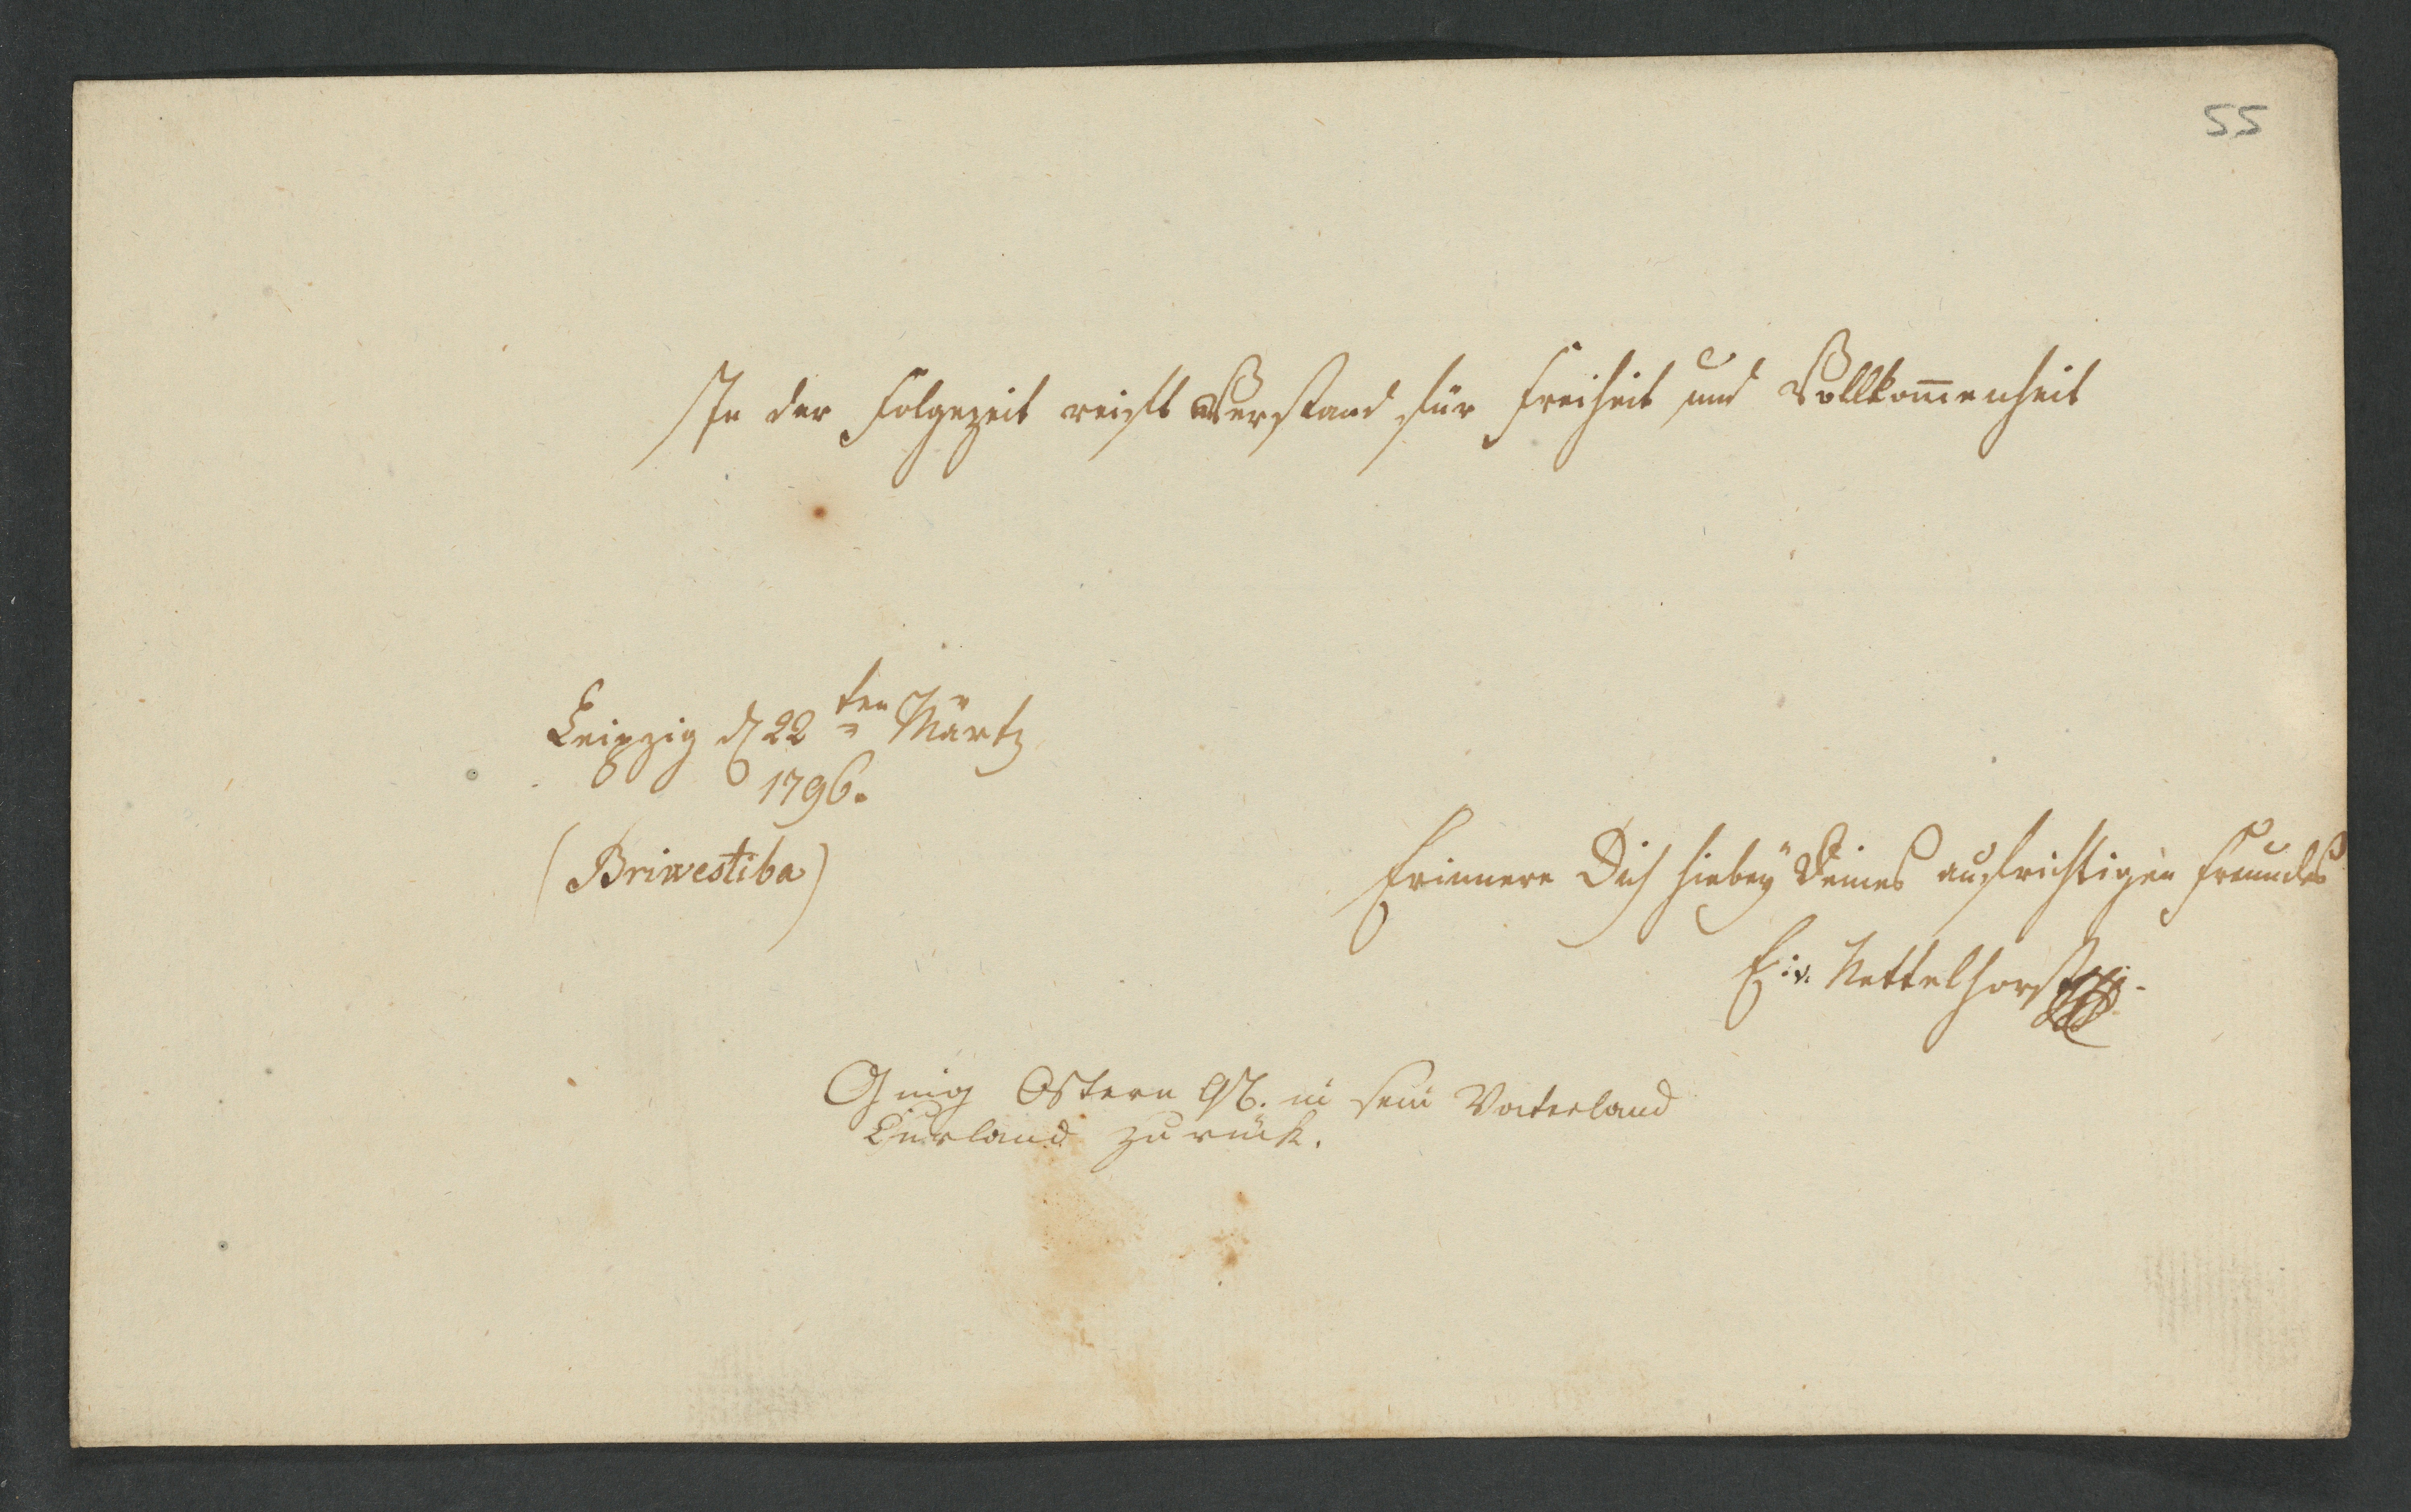 55
In der Folgezeit reift Verstand für Freiheit und Vollkom̅enheit
Leipzig d 22ten Märtz
1796.
(Briwestiba)
Erinnere Dich hiebeÿ Deines aufrichtigen Freundes
E: v. Nettelhorst
Ging Ostern 96. in sein Vaterland
Curland zurück.